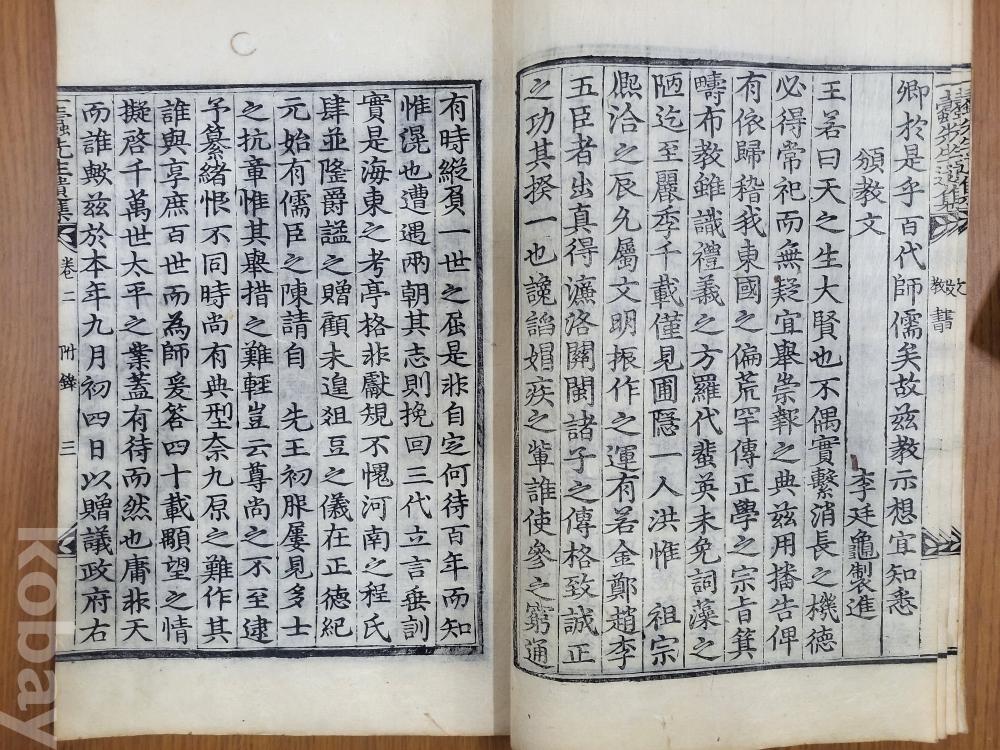 卿於是乎百代師儒矣故玆教示想宜知悉
頒教文
李廷龜製進
王若曰天之生大賢也不偶實繫消長之機德
必得常祀而無疑宜舉崇報之典玆用播告俾
有依歸稽我東國之偏荒罕傳正學之宗旨箕
疇布教雖識禮義之方羅代蜚英未免詞藻之
陋迄至麗季千載僅見圃隱一人洪惟 祖宗
熈洽之辰允屬文明振作之運有若金鄭趙李
五臣者出真得濂洛關閩諸子之傳格致誠正
之功其揆一也讒謟媢疾之軰誰使參之窮通
有時縱負一世之屈是非自定何待百年而知
惟滉也遭遇兩朝其志則挽回三代立言垂訓
實是海東之考亭格非獻規不愧河南之程氏
肆並隆爵謚之贈顧未遑俎豆之儀在正德紀
元始有儒臣之陳請自 先王初服屢見多士
之抗章惟其舉措之難輕豈云尊尚之不至逮
予纂緒恨不同時尚有典型奈九原之難作其
誰與享庶百世而為師爰答四十載顒望之情
擬啓千萬世太平之業蓋有待而然也庸非天
而誰歟玆於本年九月初四日以贈議政府右
蠹先生遺集
教書
卷二
附錄
三
kobay